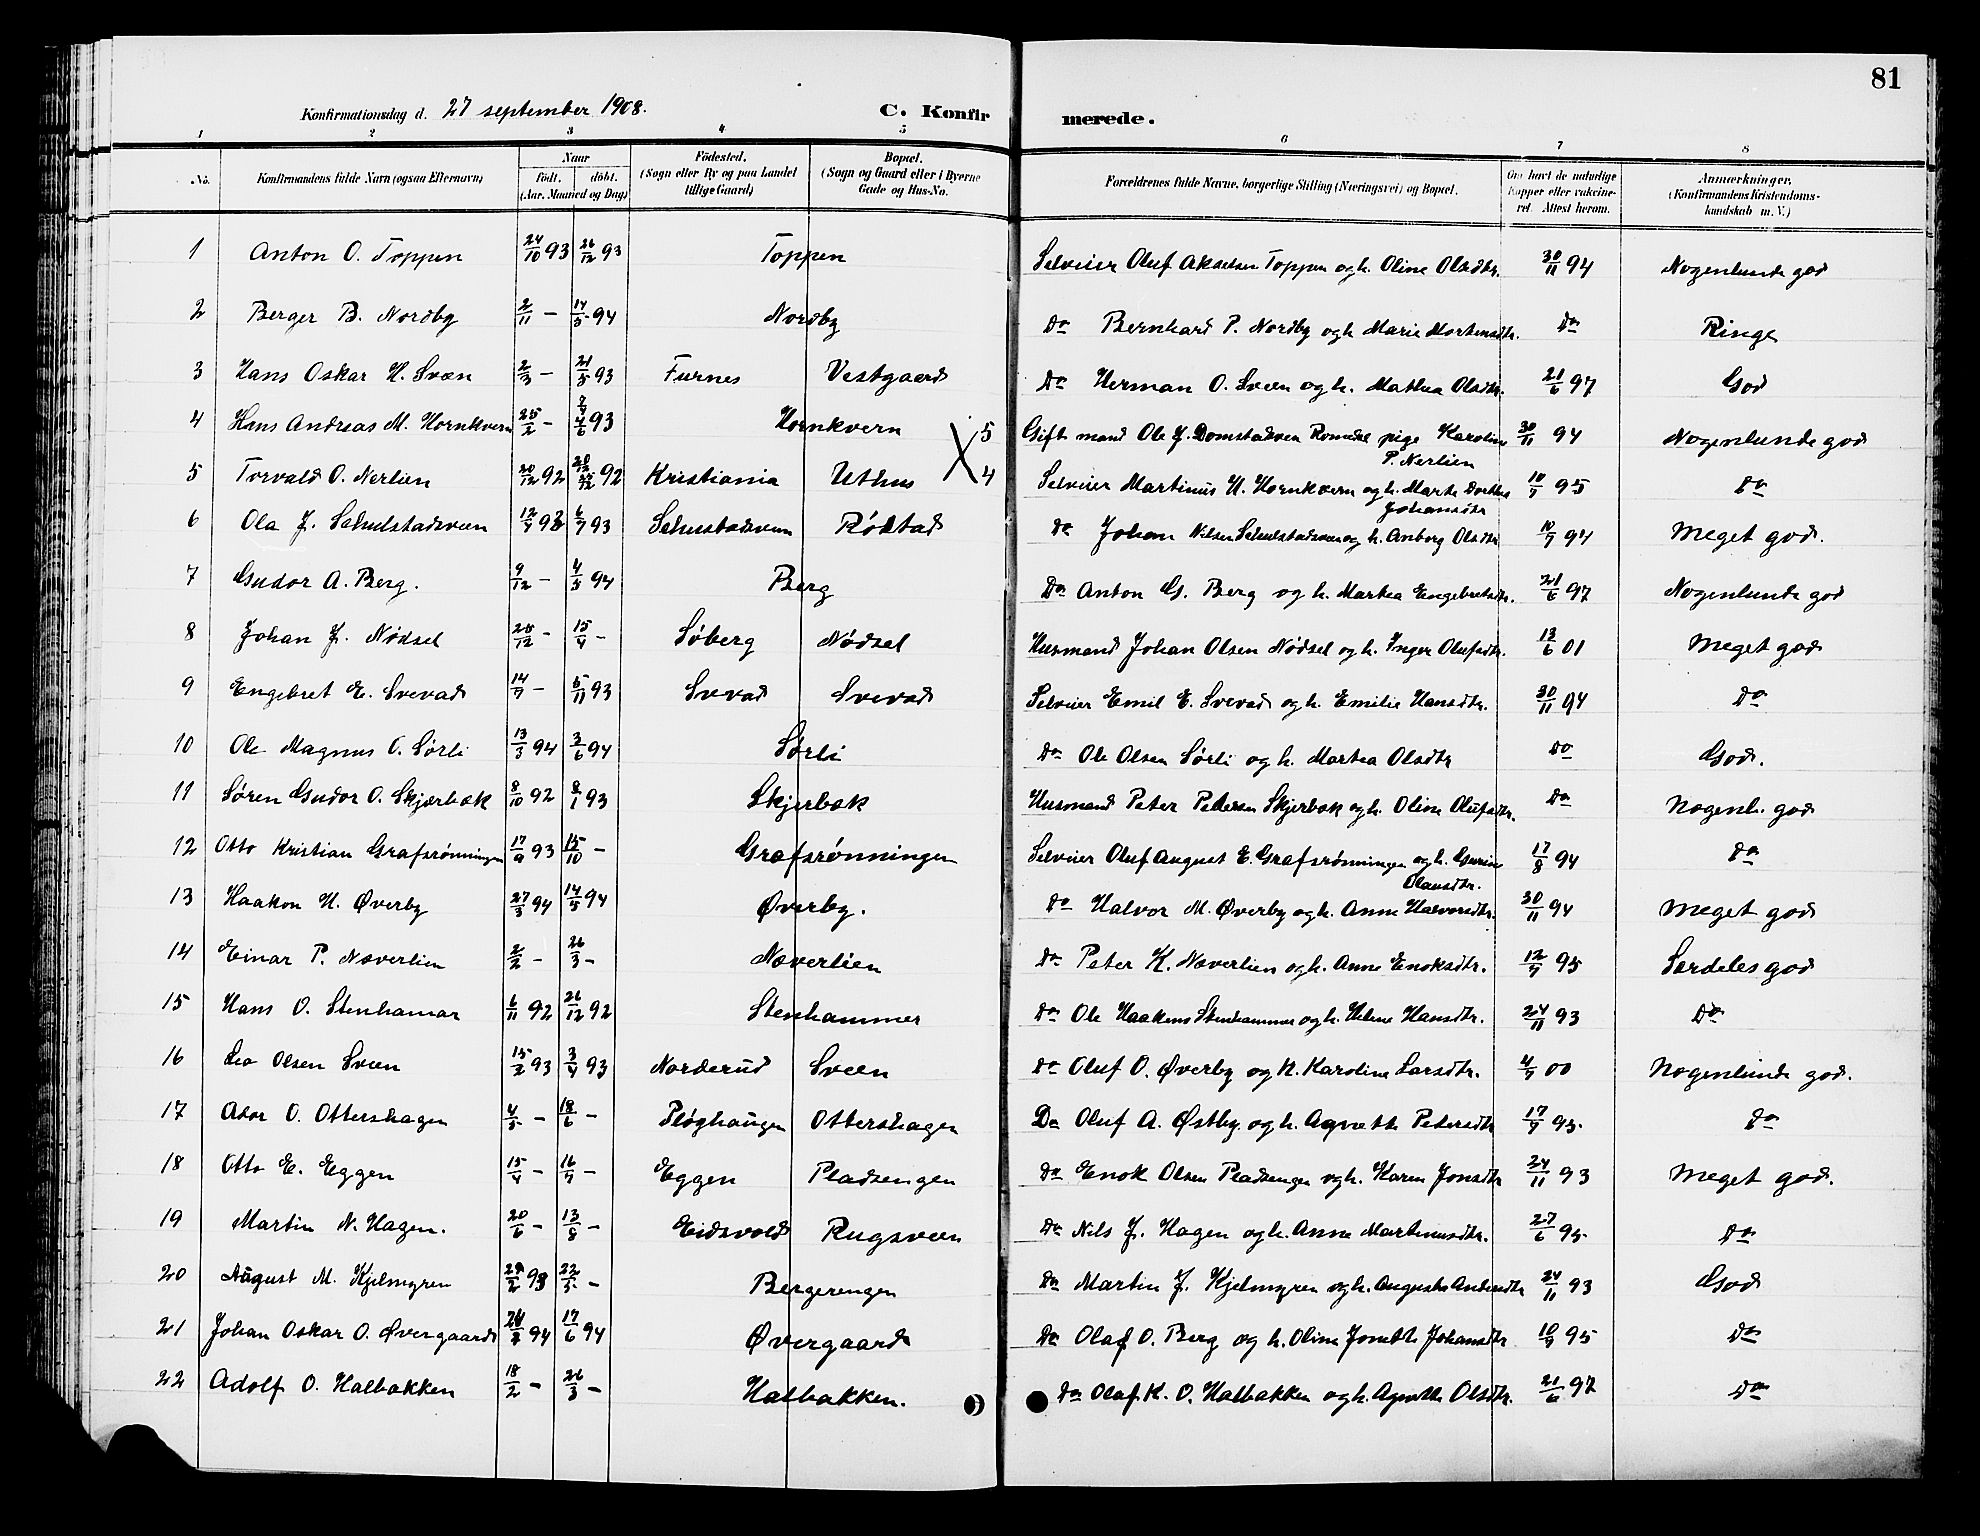 81
Konfirmationsdag d. 27 september 1908. C. Konfirmerede.
1 2 3 4 5 6 7 8
No. Konfirmandens fulde Navn (ogsaa Efternavn) Naar født. døbt. (Aar, Maaned og Dag) Fødested. (Sogn eller By og paa Landet tillige Gaard) Bopæl. (Sogn og Gaard eller i Byerne Gade og Hus-No. Forældrenes fulde Navne, borgerlige Stilling (Næringsvei) og Bopæl. Om havt de naturlige Kopper eller vaccineret. Attest herom. Anmærkninger. (Konfirmandens Kristendomskundskab m. V.)
1 Anton O. Toppen 24/10 93 26/12 93 Toppen Selveier Oluf Akselsen Toppen og h. Oline Olsdtr. 30/11 94 Nogenlunde god
2 Berger B. Nordby 2/11 — 14/5 94 Nordby Do Bernhard P. Nordby og h. Marie Mortensdtr. Do Ringe
3 Hans Oskar H. Sveen 2/3 — 21/5 93 Furnes Vestgaard Do Herman O. Sveen og h. Mathea Olsdtr. 21/6 97 God
4 Hans Andreas M. Hornkvern 25/2 — 4/6 93 Hornkvern 5 Gift mand Ole J. Domstadveen Romedal pige Karoline P. Nerlien 30/11 94 Nogenlunde god
5 Torvald O. Nerlien 20/12 92 92 Kristiania Uthus 4 Selveier Martinus H. Hornkvern og h. Marte Dorthea Johansdtr 10/9 95 Do
6 Ola J. Schulstadsveen 12/4 93 6/7 93 Schulstadsveen Rødstad Do Johan Nilsen Schulstadsveen og h. Anborg Olsdtr 10/9 94 Meget god.
7 Gudor A. Berg. 9/12 — 4/5 94 Berg Do Anton G. Berg og h. Martea Engebretsdtr. 21/6 97 Nogenlunde god
8 Johan J. Nødsel 28/12 — 15/4 — Søberg Nødsel Husmand Johan Olsen Nødsel og h. Inger Olufsdtr. 13/6 01 Meget god
9 Engebret E. Svevad 14/9 — 5/11 93 Svevad Svevad Selveier Emil E. Svevad og h. Emilie Hansdtr. 30/11 94 Do
10 Ole Magnus O. Sørli 13/3 94 3/6 94 Sørli Do Ole Olsen Sørli og h. Martea Olsdtr Do God.
11 Søren Gudor O. Skjærbæk 8/10 92 8/1 93 Skjerbæk Husmand Peter Pedersen Skjerbæk og h. Oline Olufsdtr. Do Nogenl. god
12 Otto Kristian Grafsrønningen 17/9 93 15/10 — Grafsrønningen Selveier Oluf August E. Grafsrønningen og h. Gurine Olausdtr. 17/8 94 Do
13 Haakon H. Øverby 27/3 94 14/5 94 Øverby. Do Halvor M. Øverby og h. Anne Halvorsdtr. 30/11 94 Meget god
14 Einar P. Næverlien 2/2 — 26/3 — Næverlien Do Peter K. Næverlien og h. Anne Enoksdtr. 12/9 95 Særdeles god
15 Hans O. Stenhamar 6/11 92 26/12 92 Stenhammer Do Ole Haakens Stenhammer og h. Helene Hansdtr. 24/11 93 Do
16 Leo Olsen Sveen 15/2 93 3/4 93 Norderud Sveen Do Oluf O. Øverby og h. Karoline Larsdtr. 4/9 00 Nogenlunde god.
17 Asor O. Ottershagen 4/5 — 18/6 — Pløghaugen Ottershagen Do Oluf A. Østby og h. Agnethe Petersdtr 17/9 95. Do
18 Otto E. Eggen 15/4 — 16/7 — Eggen Pladsengen Do Enok Olsen Pladsengen og h. Karen Jonsdtr 24/11 93 Meget god.
19 Martin N. Hagen. 20/6 — 13/8 — Eidsvold Rugsveen Do Nils J. Hagen og h. Anne Martinusdtr. 27/6 95 Do
20 August M. Kjelmyren 93 22/5 — Bergerengen Do Martin J. Kjelmyren og h. Augusta Andersdtr 24/11 93 God
21 Johan Oskar O. Øvergaard 94 17/6 94 Øvergaard Do Olaf O. Berg og h. Oline Jonette Johansdtr 10/9 95 Do
22 Adolf O. Halbakken 18/2 — 26/3 — Halbakken. Do Olaf K. O. Halbakken og h. Agnethe Olsdtr. 21/6 97 Do